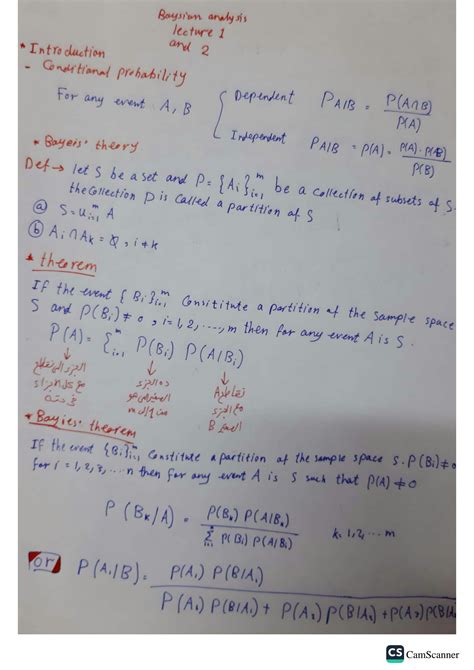 Baysian analysis
lecture 1
and 2
* Introduction
- Conditional probability
For any event A, B
Dependent P A/B = P(A∩B) / P(A)
Independent P A/B = P(A) = P(A)·P(B) / P(B)
* Bayeis' theory
Def → let S be a set and P = {Ai}ᵐᵢ₌₁ be a collection of subsets of S.
the collection P is called a partition of S
ⓐ S = ∪ᵐᵢ₌₁ A
ⓑ Ai ∩ Ak = Q, i ≠ k
* theorem
If the event {Bi}ᵐᵢ₌₁ Consititute a partition of the sample space
S and P(Bi) ≠ 0, i = 1, 2, ...., m then for any event A is S.
P(A) = Σᵐᵢ₌₁ P(Bi) P(A/Bi)
* Bayies' theorem
If the event {Bi}ᵐᵢ₌₁ Constitute a partition of the sample space S. P(Bi) ≠ 0
for i = 1, 2, 3, ... n then for any event A is S such that P(A) ≠ 0
P(Bk/A) = P(Bk) P(A/Bk) / Σ P(Bi) P(A/Bi) k = 1, 2, ... m
or P(A₁/B) = P(A₁) P(B/A₁) / P(A₁) P(B/A₁) + P(A₂) P(B/A₂) + P(A₃) P(B/A
CS CamScanner